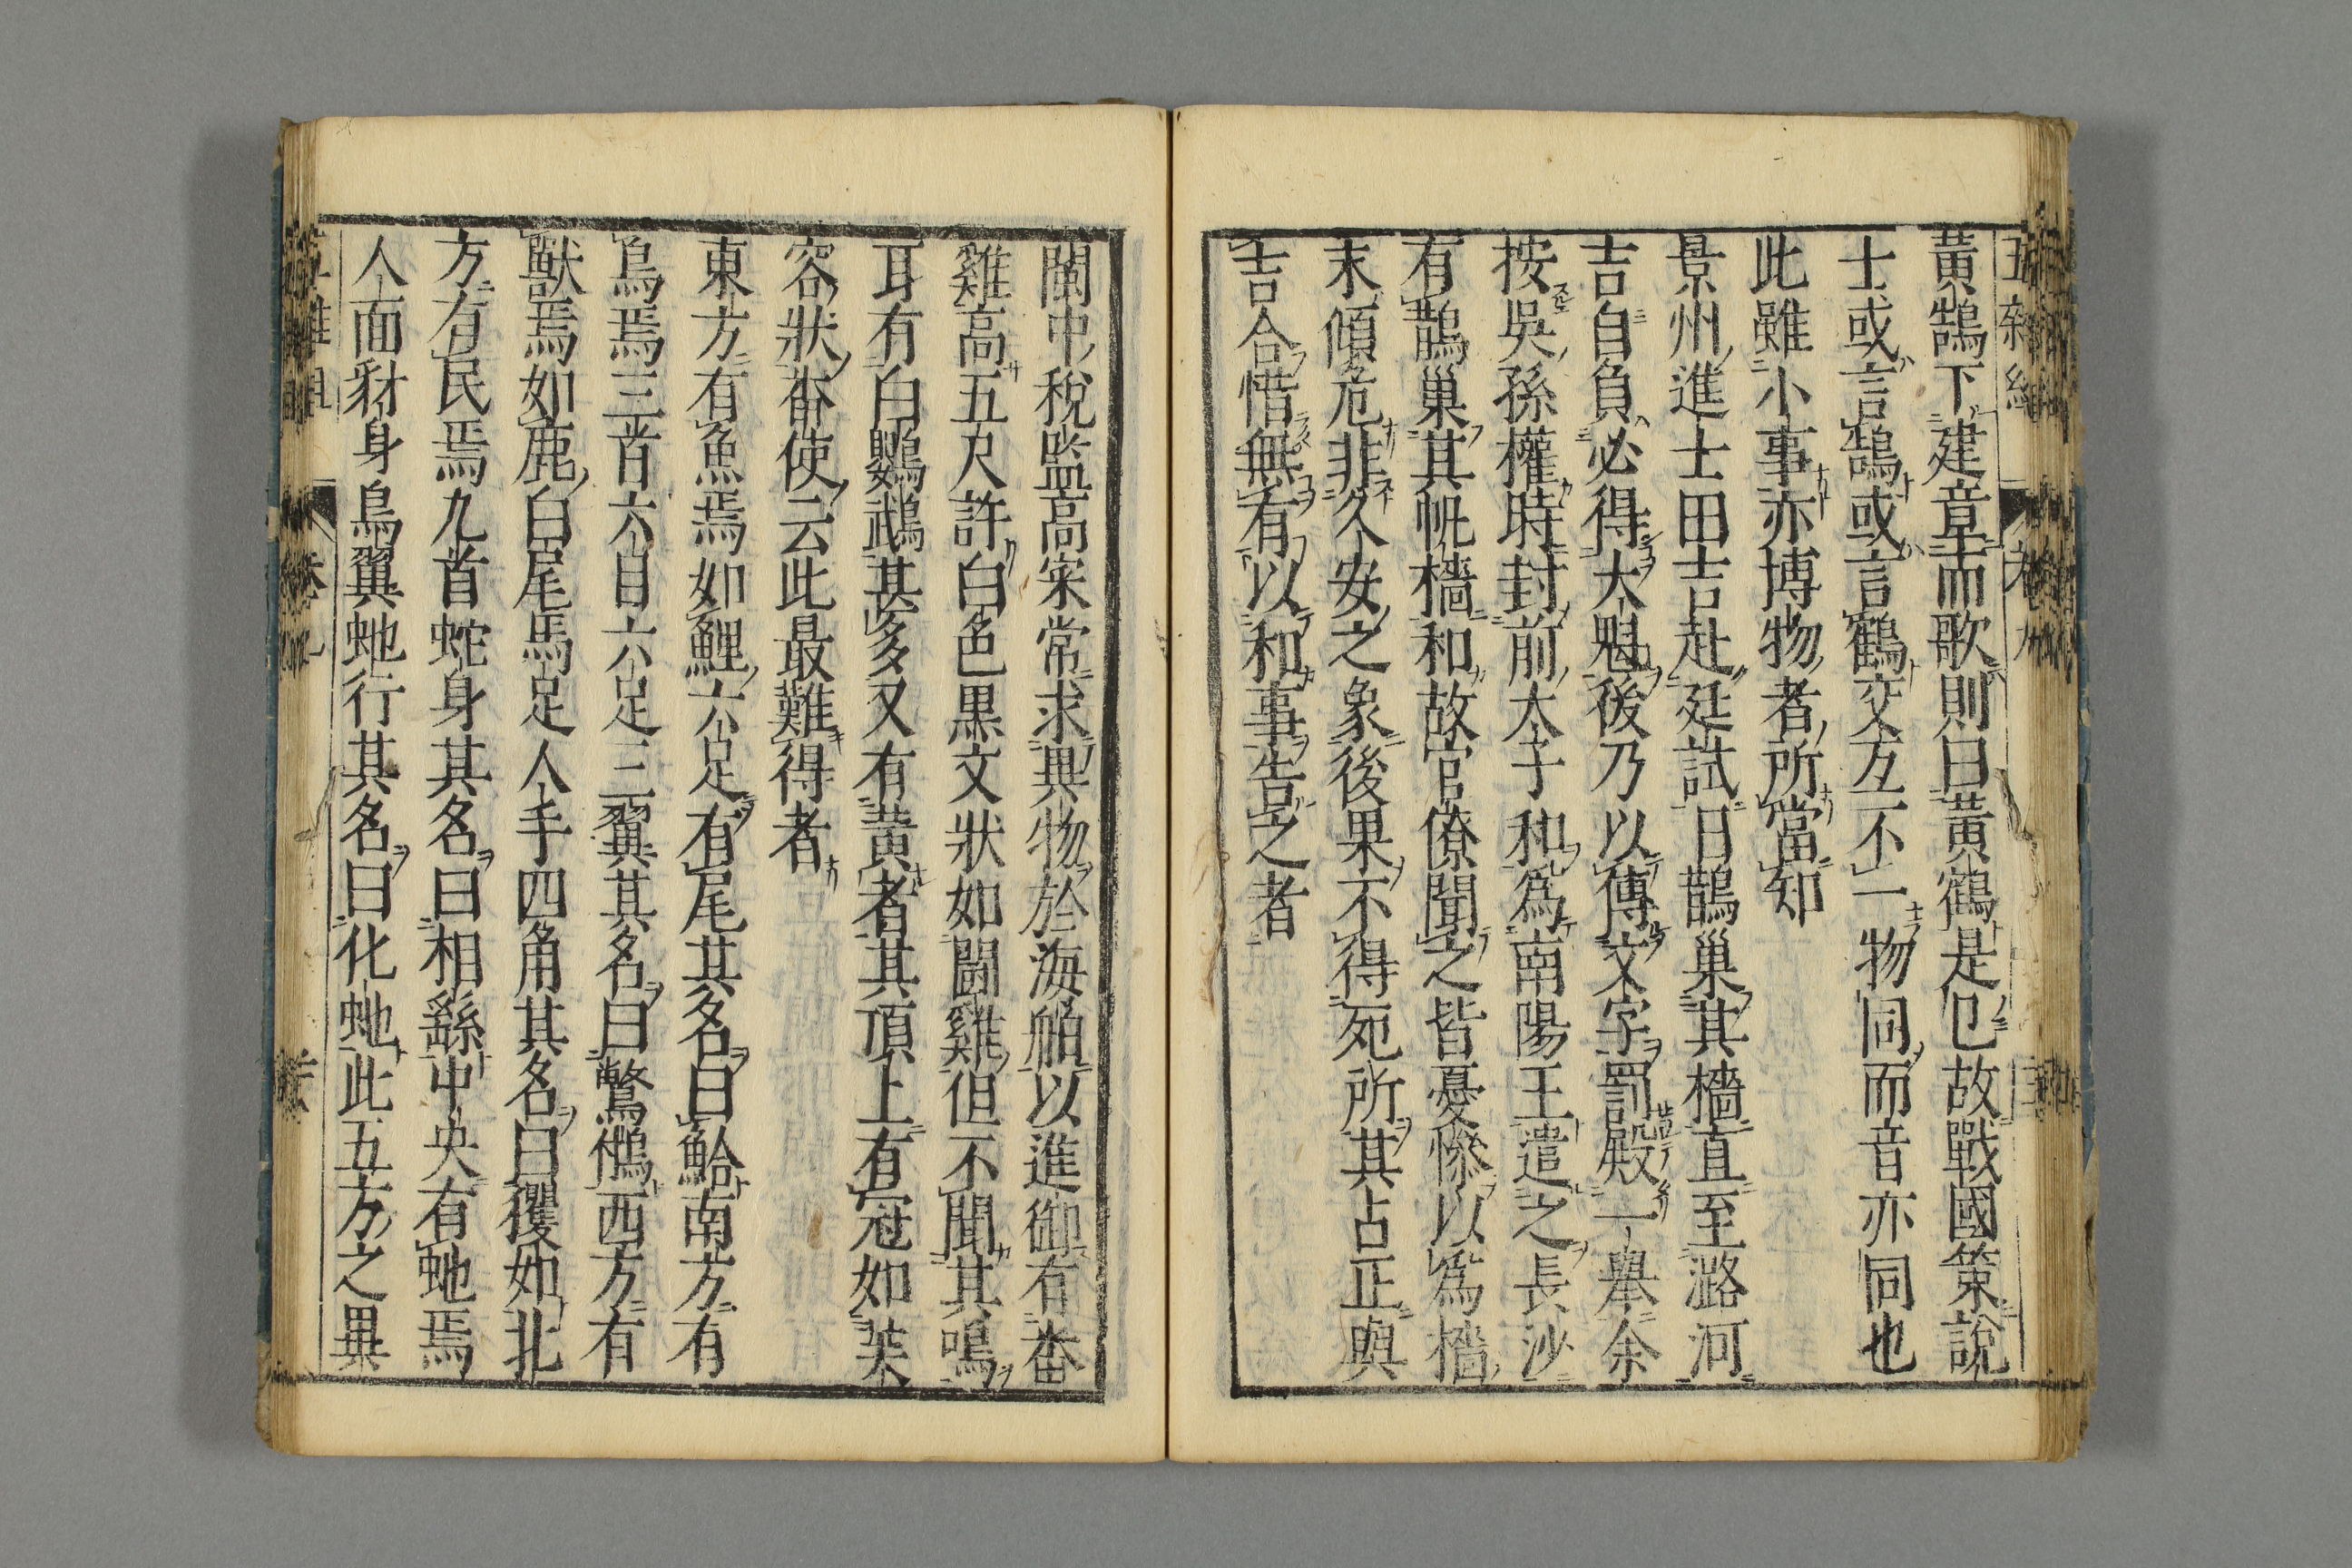 黃鵠下建章而歌則曰黃鶴是已故戰國策說
士或言鵠或言鶴交互不一物同而音亦同也
此雖小事亦博物者所當知
景州進士田吉赴廷試日鵲巢其檣直至潞河
吉自負必得大魁後乃以傳文字罰殿一舉余
按吳孫權時封前太子和爲南陽王遣之長沙
有鵲巢其帆檣和故官僚聞之皆憂慘以爲檣
末傾危非久安之象後果不得死所其占正與
吉合惜無有以和事告之者
閩中稅監高寀常求異物於海舶以進御有番
雞高五尺許白色黑文狀如鬪雞但不聞其鳴
耳有白鸚鵡甚多又有黃者其頂上有冠如芙
容狀番使云此最難得者
東方有魚焉如鯉六足有尾其名曰鮯南方有
鳥焉三首六目六足三翼其名曰鷩𪁺西方有
獸焉如鹿白尾馬足人手四角其名曰玃如北
方有民焉九首蛇身其名曰相繇中央有虵焉
人面豺身鳥翼虵行其名曰化虵此五方之異